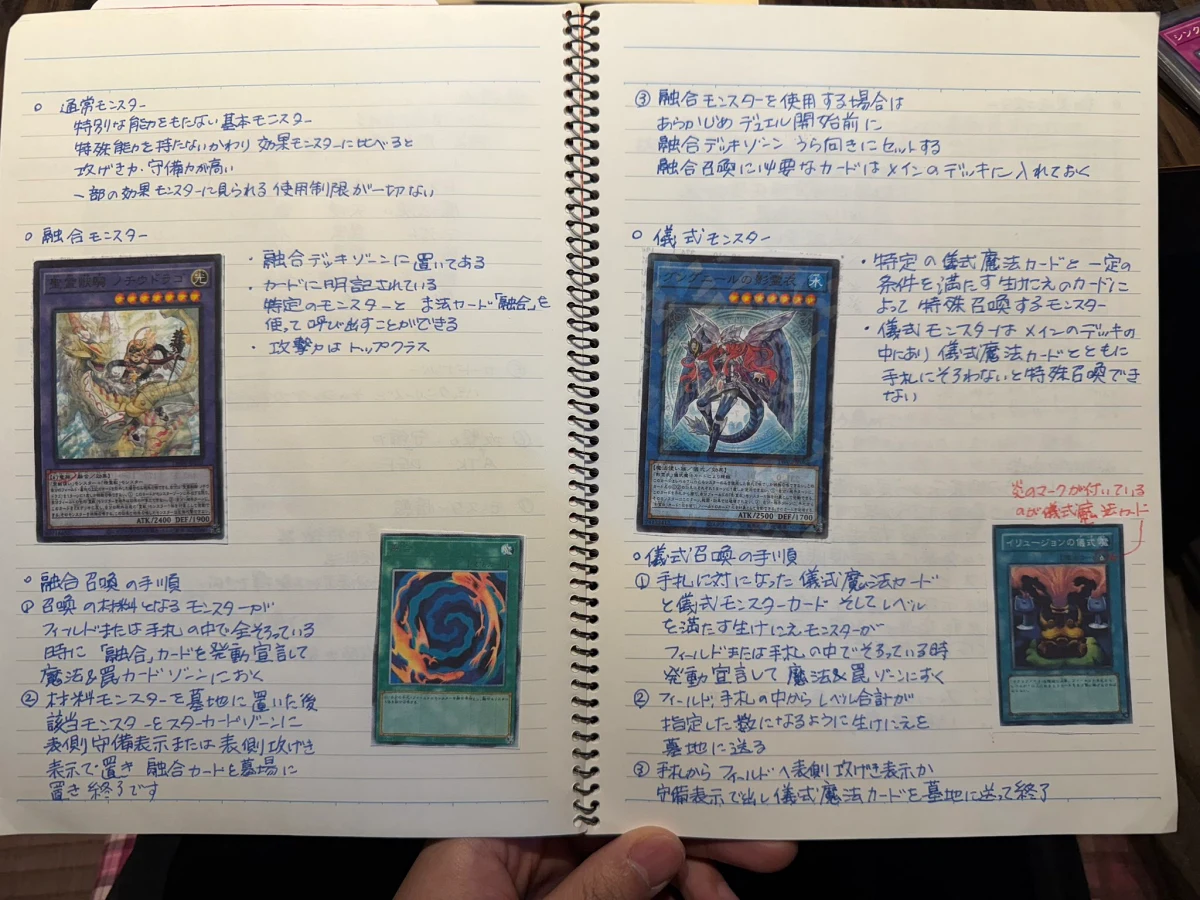 ○ 通常モンスター
特別な能力をもたない基本モンスター
特殊能力を持たないかわり 効果モンスターに比べると
攻げき力・守備力が高い
一部の効果モンスターに見られる使用制限が一切ない
○ 融合モンスター
・融合デッキゾーンに置いてある
・カードに明記されている
特定のモンスターと まほうカード「融合」を
使って呼び出すことができる
・攻撃力はトップクラス
ATK/2400 DEF/1900
○ 融合召喚の手順
① 召喚の材料となるモンスターが
フィールドまたは手札の中で全そろっている
時に「融合」カードを発動宣言して
魔法&罠カードゾーンにおく
② 材料モンスターを墓地に置いた後
該当モンスターをスターカードゾーンに
表側守備表示または表側攻げき
表示で置き 融合カードを墓場に
置き終了です
③ 融合モンスターを使用する場合は
あらかじめデュエル開始前に
融合デッキゾーン うら向きにセットする
融合召喚に必要なカードはメインのデッキに入れておく
○ 儀式モンスター
の影霊衣
水
ATK/2500 DEF/1700
・特定の儀式魔法カードと一定の
条件を満たす生けにえのカードに
よって特殊召喚するモンスター
・儀式モンスターはメインのデッキの
中にあり儀式魔法カードとともに
手札にそろわないと特殊召喚でき
ない
炎のマークが付いている
のが儀式魔法カード
イリュージョンの儀式
魔
○儀式召喚の手順
① 手札に対になった儀式魔法カード
と儀式モンスターカード そしてレベル
を満たす生けにえモンスターが
フィールドまたは手札の中でそろっている時
発動宣言して 魔法&罠ゾーンにおく
② フィールド、手札の中からレベル合計が
指定した数になるように生けにえを
墓地に送る
③ 手札からフィールドへ表側攻げき表示か
守備表示で出し儀式魔法カードを墓地に送って終了